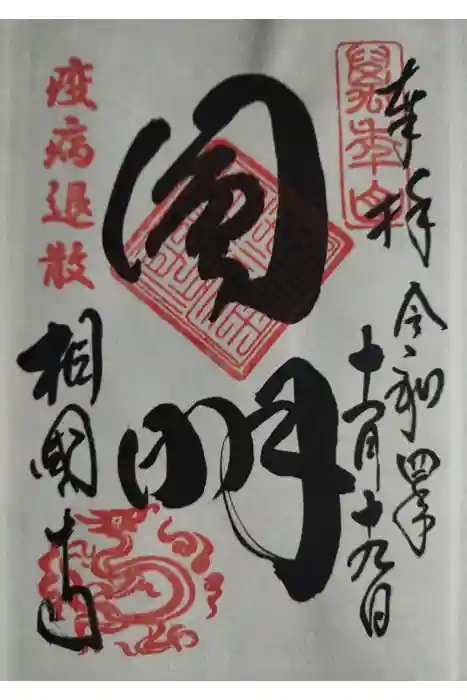 奉拝
萬年山
令和四年
十一月十九日
圓明
疫病退散
相國寺